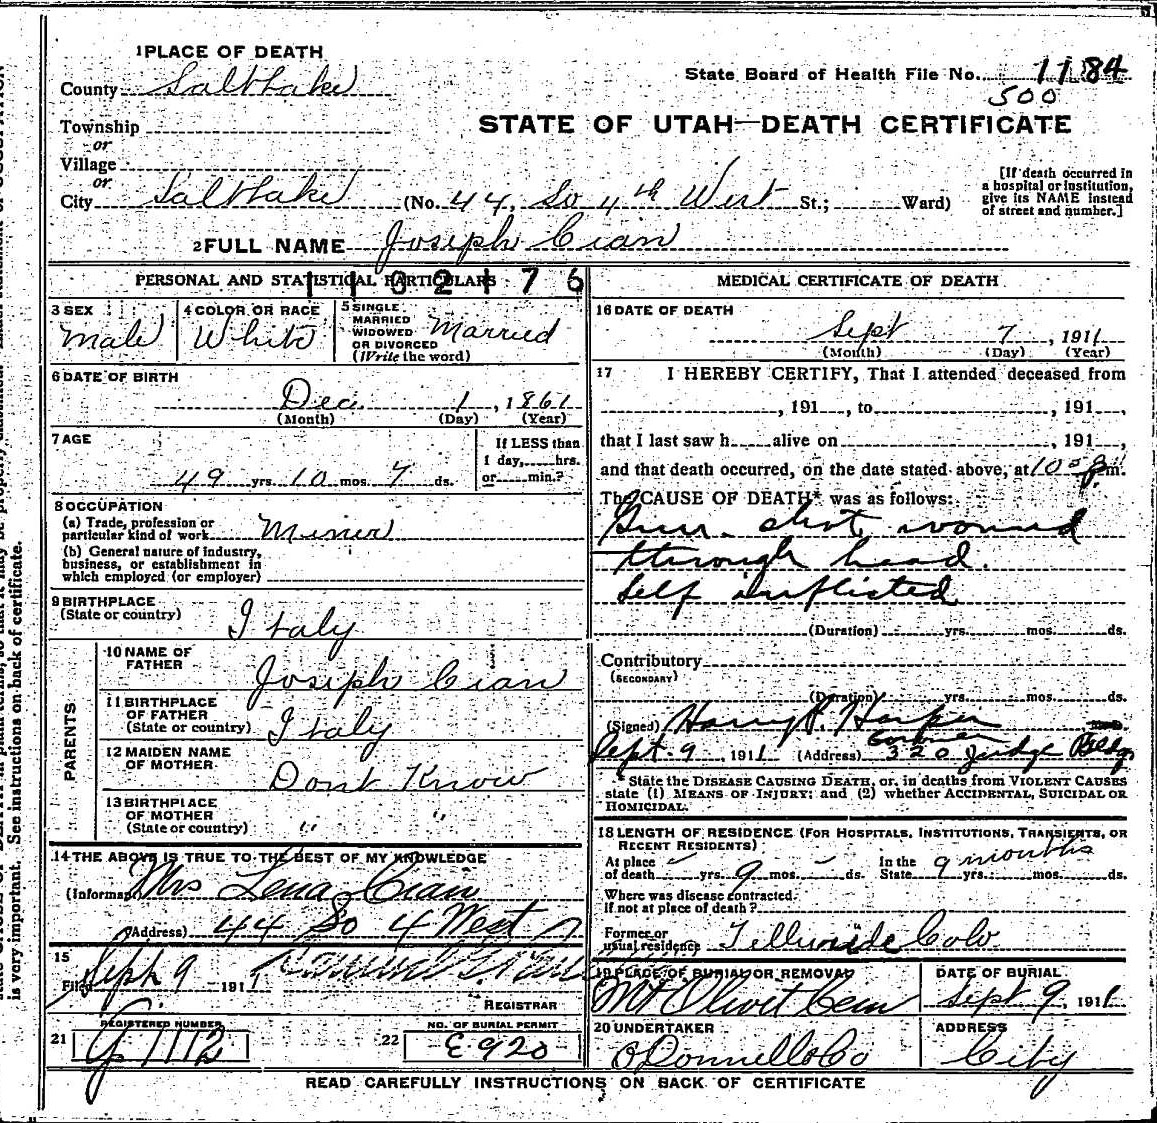 1 PLACE OF DEATH
County Salt Lake
State Board of Health File No. 1184
500
Township
or
Village
or
STATE OF UTAH—DEATH CERTIFICATE
City Salt Lake (No. 44. So 4th West St.; Ward)
[If death occurred in
a hospital or institution,
give its NAME instead
of street and number.]
2 FULL NAME Joseph Cian
PERSONAL AND STATISTICAL PARTICULARS
1102176
3 SEX
Male
4 COLOR OR RACE
White
5 SINGLE
MARRIED
WIDOWED
OR DIVORCED
(Write the word)
Married
6 DATE OF BIRTH
Dec. 1, 1861
(Month) (Day) (Year)
7 AGE
49 yrs. 10 mos. 7 ds.
If LESS than
1 day, hrs.
or min.?
8 OCCUPATION
(a) Trade, profession or
particular kind of work Miner
(b) General nature of industry,
business, or establishment in
which employed (or employer)
9 BIRTHPLACE
(State or country)
Italy
PARENTS
10 NAME OF
FATHER
Joseph Cian
11 BIRTHPLACE
OF FATHER
(State or country)
Italy
12 MAIDEN NAME
OF MOTHER
Dont Know
13 BIRTHPLACE
OF MOTHER
(State or country) " "
14 THE ABOVE IS TRUE TO THE BEST OF MY KNOWLEDGE
(Informant) Mrs Lena Cian
(Address) 44 So 4 West
15
Filed Sept 9 1911
REGISTRAR
21
REGISTERED NUMBER
G 1112
22
NO. OF BURIAL PERMIT
E920
MEDICAL CERTIFICATE OF DEATH
16 DATE OF DEATH
Sept 7, 1911
(Month) (Day) (Year)
17 I HEREBY CERTIFY, That I attended deceased from
, 191 , to , 191 ,
that I last saw h alive on , 191 ,
and that death occurred, on the date stated above, at 10 m.
The CAUSE OF DEATH* was as follows:
Gun shot wound
through head.
Self inflicted
(Duration) yrs. mos. ds.
Contributory
(SECONDARY)
(Duration) yrs. mos. ds.
(Signed) Harry P. Harper
Coroner
Sept. 9, 1911 (Address) 320 Judge Bldg
* State the DISEASE CAUSING DEATH, or, in deaths from VIOLENT CAUSES
state (1) MEANS OF INJURY; and (2) whether ACCIDENTAL, SUICIDAL OR
HOMICIDAL.
18 LENGTH OF RESIDENCE (FOR HOSPITALS, INSTITUTIONS, TRANSIENTS, OR
RECENT RESIDENTS)
At place
of death - yrs. 9 mos. - ds.
In the
State 9 months yrs. mos. ds.
Where was disease contracted
if not at place of death?
Former or
usual residence Telluride Colo
19 PLACE OF BURIAL OR REMOVAL
Mt Olivet Cem
DATE OF BURIAL
Sept 9, 1911
20 UNDERTAKER
O'Donnell & Co
ADDRESS
City
READ CAREFULLY INSTRUCTIONS ON BACK OF CERTIFICATE
is very important. See instructions on back of certificate.